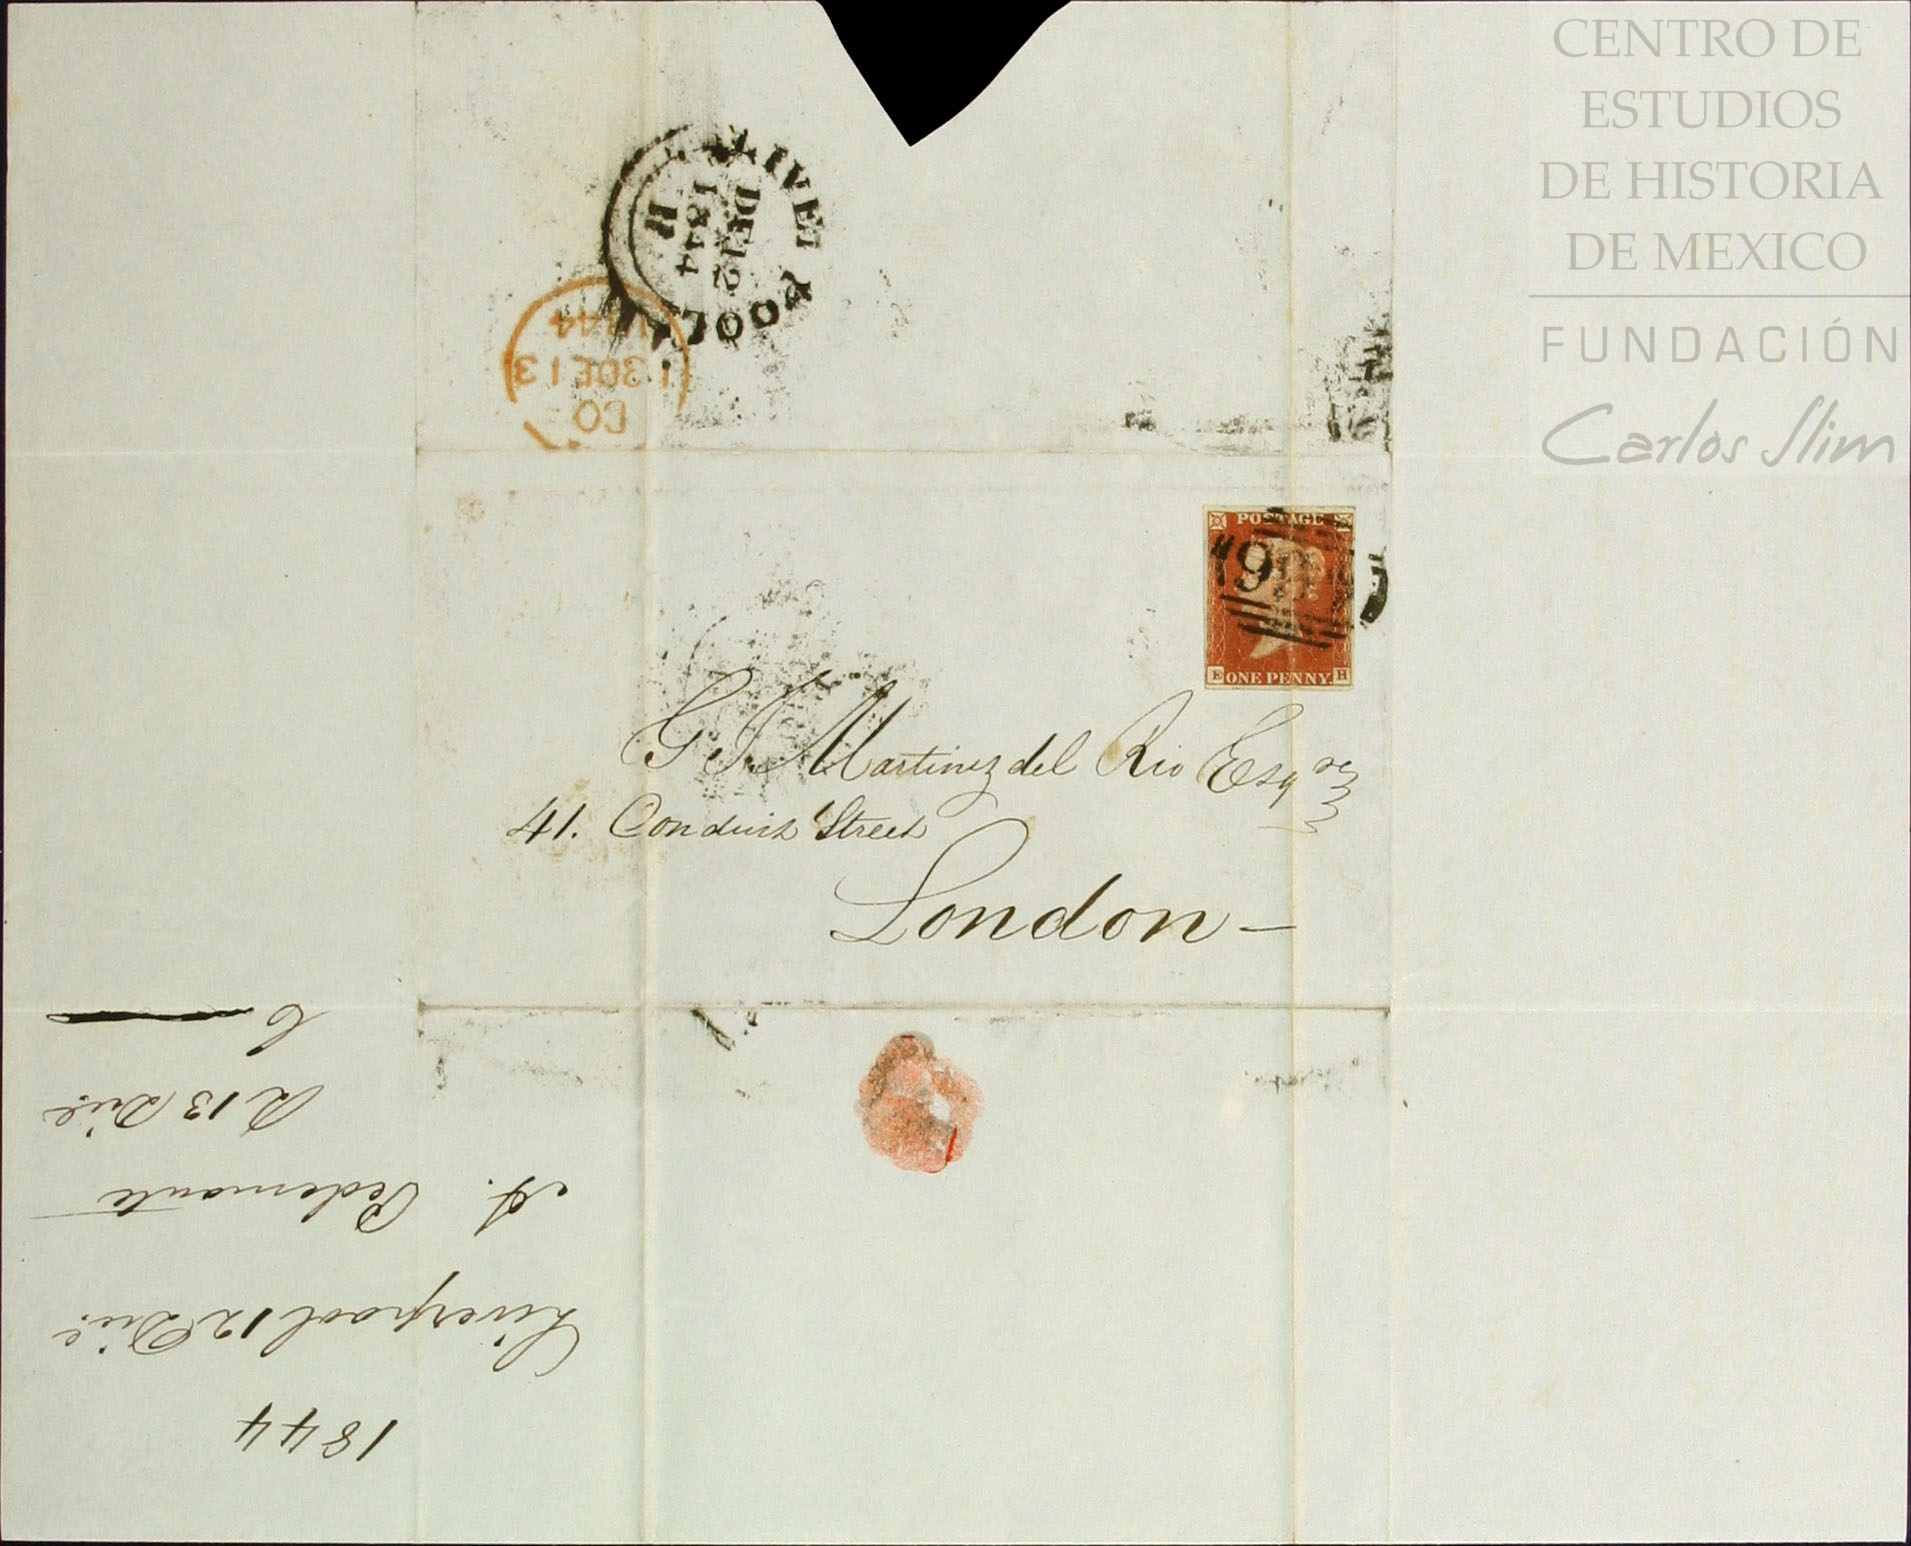 CENTRO DE
ESTUDIOS
DE HISTORIA
DE MEXICO
FUNDACIÓN
Carlos Slim
LIVERPOOL
DE 12
1844
CO
13DE13
1844
POSTAGE
E ONE PENNY. H
G J Martinez del Rio Esqre
41. Conduit Street
London -
1844
Liverpool 12 Dice
A. Pedemonte
R 13 Dice